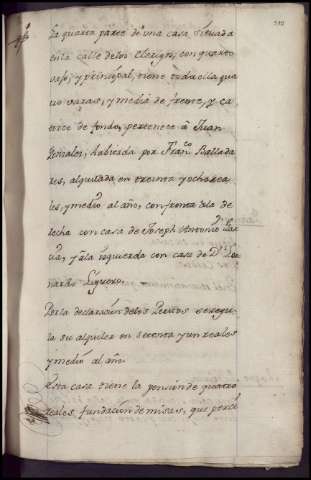 La quarta parte de una casa situada
en la calle de los Clerigs, con quarto
vajo, y principal, tiene toda ella qua
tro varas, y media de frente, y ca
torce de fondo, pertenece â Juan
Gonzalez, havitada por Franco Ballada
res, alquilada en treinta y ocho rea
les, y medio al año, confronta a la de
recha con casa de Joseph Antonio
y a la izquierda con casa de Dn
nardo
Por la declaración de los Peritos se regu
la su alquiler en setenta y un reales
y medio al año
Esta casa tiene la pensión de quatro
reales, fundación de misas, que perci